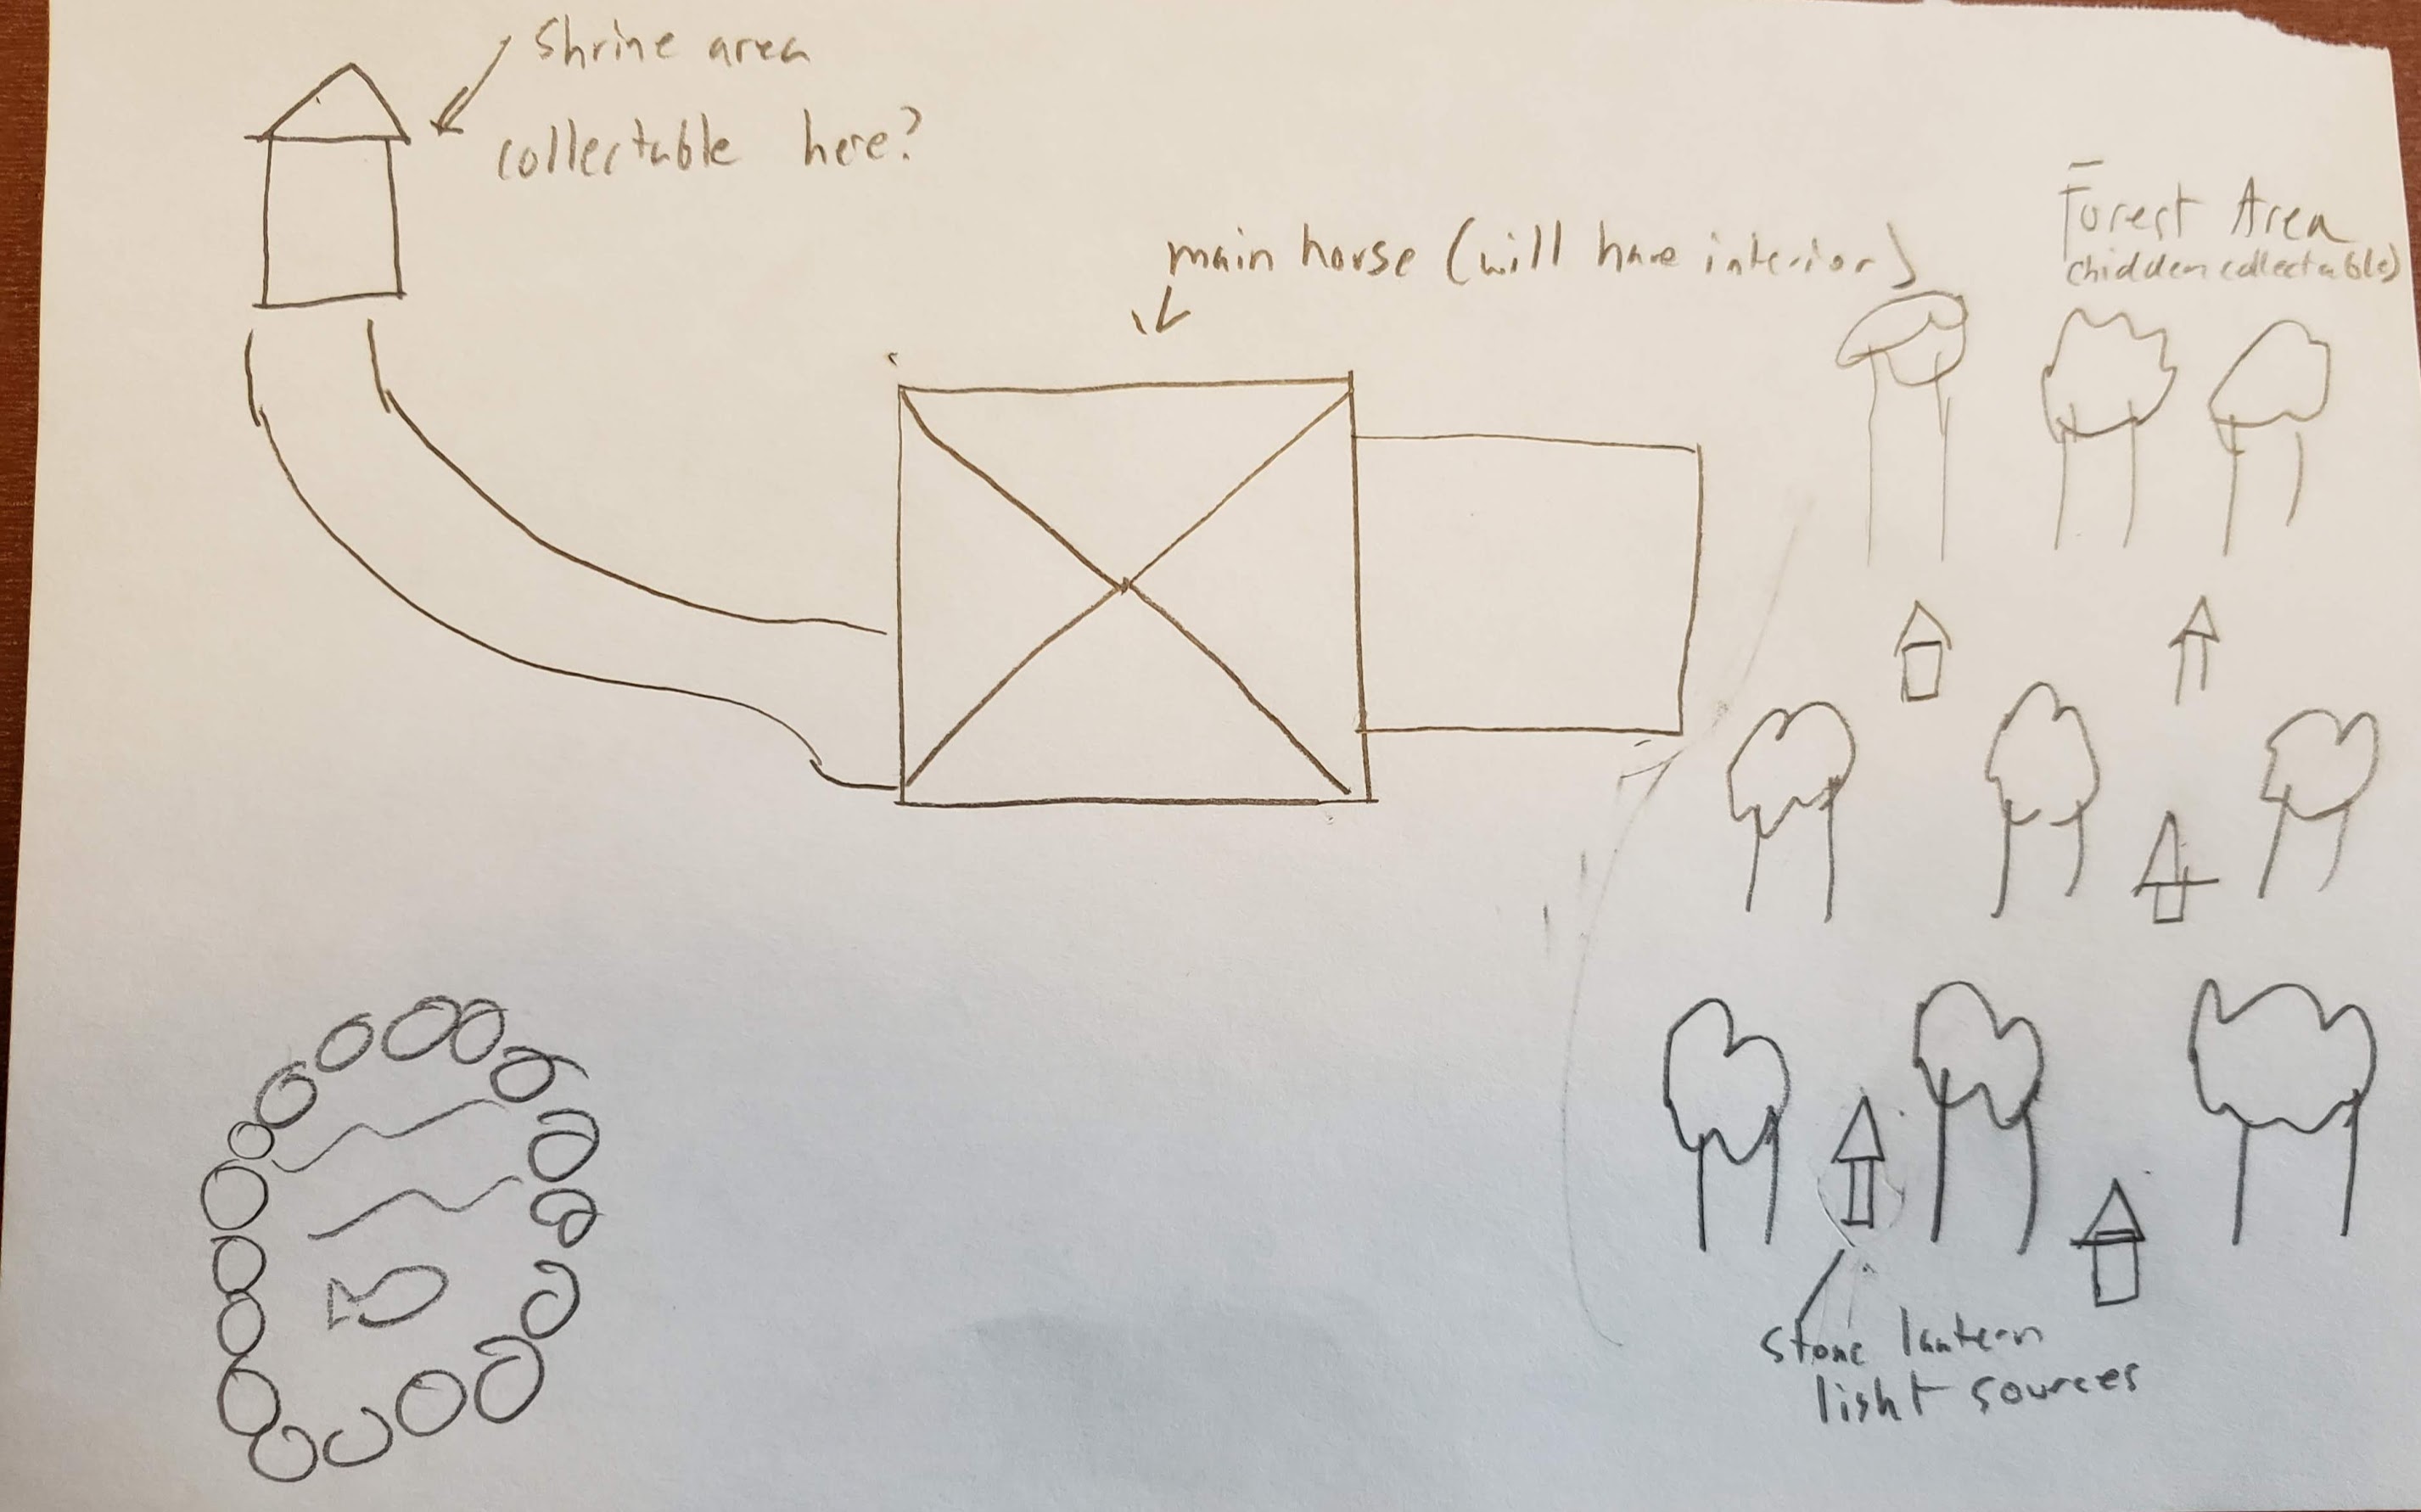 Shrine area
collectable here?
main house (will have interior)
Forest Area
(hidden collectable)
Stone lantern
light sources